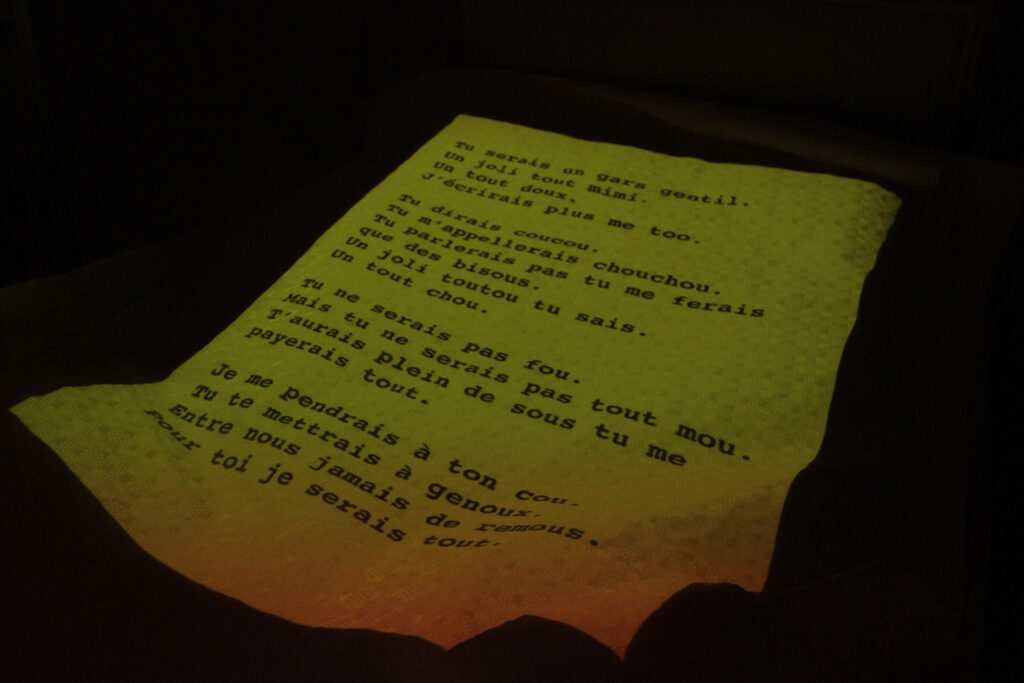 Tu serais un gars gentil.
Un joli tout mimi.
Un tout doux.
J'écrirais plus me too.
Tu dirais coucou.
Tu m'appellerais chouchou.
Tu parlerais pas tu me ferais
que des bisous.
Un joli toutou tu sais.
Un tout chou.
Tu ne serais pas fou.
Mais tu ne serais pas tout mou.
T'aurais plein de sous tu me
payerais tout.
Je me pendrais à ton cou.
Tu te mettrais à genoux.
Entre nous jamais de remous.
Pour toi je serais tout.